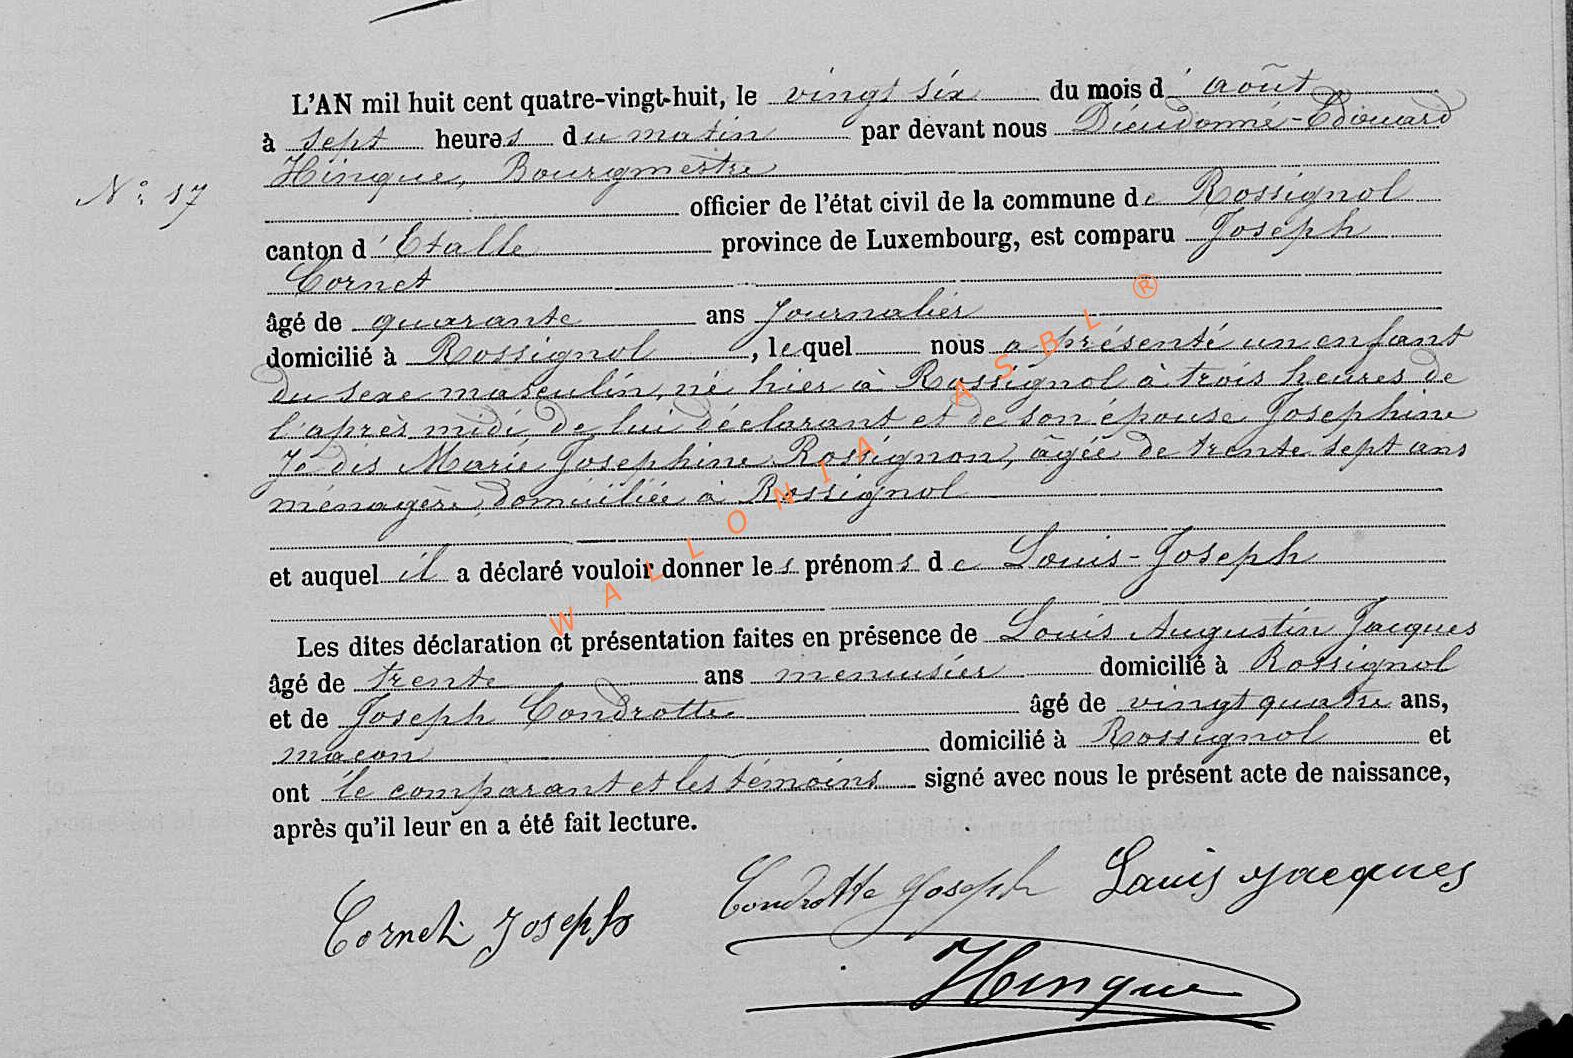 L'AN mil huit cent quatre-vingt-huit, le vingt six du mois d'août
à sept heures du matin par devant nous Dieudonné-Edouard
Hinque, Bourgmestre
N° 17
officier de l'état civil de la commune de Rossignol
canton d'Etalle province de Luxembourg, est comparu Joseph
Cornet
âgé de quarante ans Journalier
domicilié à Rossignol, lequel nous a présenté un enfant
du sexe masculin, né hier à Rossignol à trois heures de
l'après midi, de lui déclarant et de son épouse Josephine
Je dis Marie Josephine Rossignon, âgée de trente sept ans
ménagère, domiciliée à Rossignol
et auquel il a déclaré vouloir donner les prénoms de Louis-Joseph
Les dites déclaration et présentation faites en présence de Louis Augustin Jacques
âgé de trente ans menuisier domicilié à Rossignol
et de Joseph Condrotte âgé de vingt quatre ans,
maçon domicilié à Rossignol et
ont le comparant et les témoins signé avec nous le présent acte de naissance,
après qu'il leur en a été fait lecture.
Cornet Joseph Condrotte Joseph Louis Jacques
Hinque
WALLONIA ASBL ®